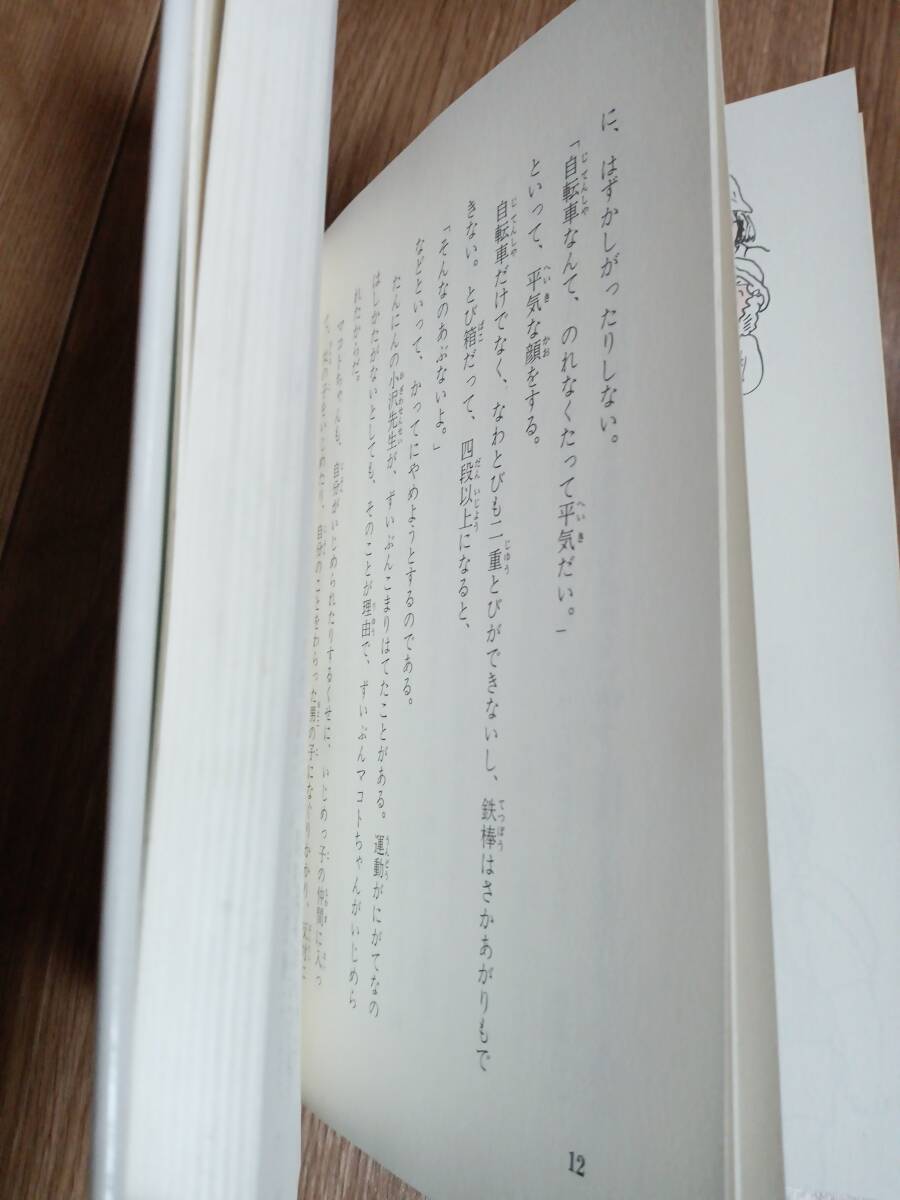 に、はずかしがったりしない。
「自転車なんて、のれなくたって平気だい。」
といって、平気な顔をする。
自転車だけでなく、なわとびも二重とびができないし、鉄棒はさかあがりもで
きない。とび箱だって、四段以上になると、
「そんなのあぶないよ。」
などといって、かってにやめようとするのである。
たんにんの小沢先生が、ずいぶんこまりはてたことがある。運動がにがてなの
はしかたがないとしても、そのことが理由で、ずいぶんマコトちゃんがいじめら
れたからだ。
マコトちゃんも、自分がいじめられたりするくせに、いじめっ子の仲間に入っ
て、女の子をいじめたり、自分のことをわらった男の子になぐりかかり、
12